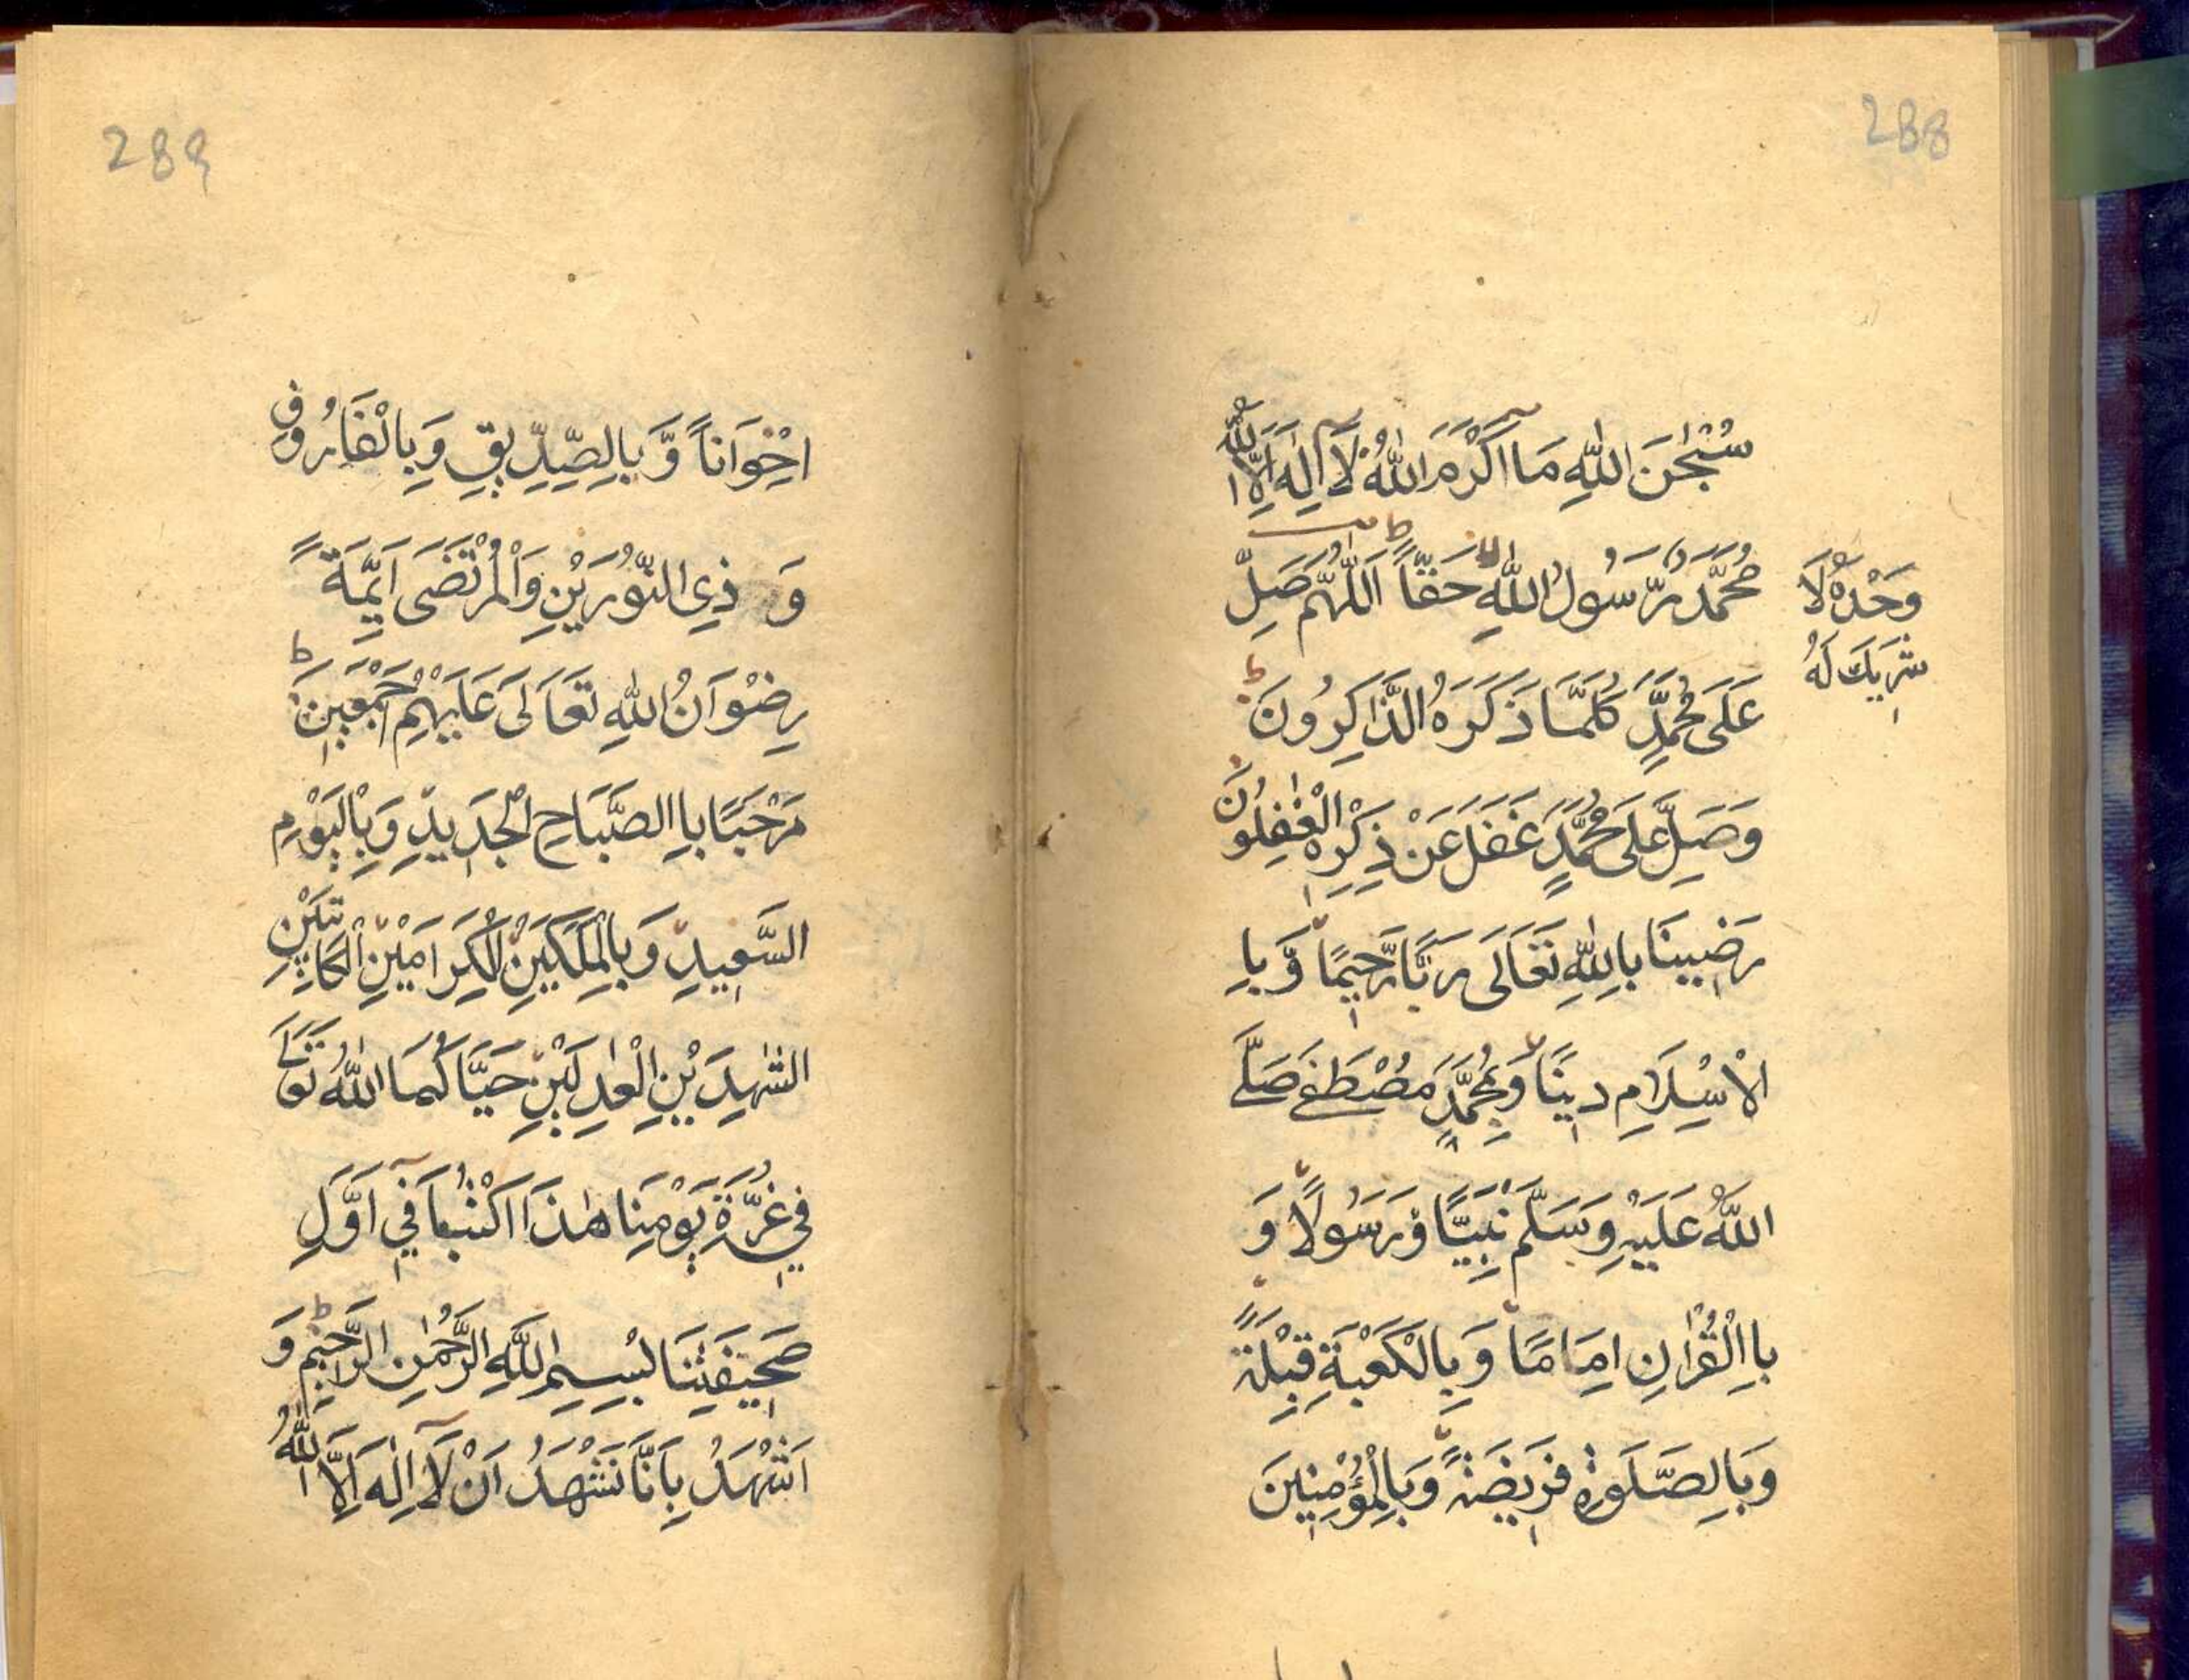 288
سُبْحٰنَ اللّٰهِ مَا اَكْرَمَ اللّٰهُ لَآ اِلٰهَ اِلَّا اللّٰهُ
وَحْدَهٗ لَا
شَرِيْكَ لَهٗ
مُحَمَّدٌ رَّسُوْلُ اللّٰهِ حَقًّا اَللّٰهُمَّ صَلِّ
عَلَى مُحَمَّدٍ كُلَّمَا ذَكَرَهُ الذَّاكِرُونَ
وَصَلِّ عَلَى مُحَمَّدٍ غَفَلَ عَنْ ذِكْرِهِ الْغٰفِلُونَ
رَضِينَا بِاللّٰهِ تَعَالَى رَبًّا رَّحِيْمًا وَّبِا
الْاِسْلَامِ دِيْنًا وَبِمُحَمَّدٍ مُصْطَفٰے صَلَّے
اللّٰهُ عَلَيْهِ وَسَلَّمَ نَبِيًّا وَّرَسُولًا وَ
بِاالْقُرْاٰنِ اِمَامًا وَبِالْكَعْبَةِ قِبْلَةً
وَبَالِصَّلٰوةِ فَرِيْضَةً وَبِالْمُؤْمِنِيْنَ
289
اِخْوَاناً وَّبِالصِّدِّيْقِ وَبِالْفَارُوْقِ
وَ ذِي النُّوْرَيْنِ وَالْمُرْتَضَى اَئِمَّةً
رِضْوَانُ اللّٰهِ تَعَالَى عَلَيْهِمْ اَجْمَعِيْنَ
مَرْحَبًا بِاالصَّبَاحِ الْجَدِيْدِ وَبِالْيَوْمِ
السَّعِيْدِ وَبِالْمَلَكَيْنِ الْكِرَامَيْنِ الْكَاتِبَيْنِ
الشّٰهِدَيْنِ الْعٰدِلَيْنِ حَيَّاكُمَا اللّٰهُ تَعَالَے
فِي غُرَّةِ يَوْمِنَا هٰذَا اَكْتُبَا فِيْٓ اَوَّلِ
صَحِيْفَتِنَا بِسْمِ اللّٰهِ الرَّحْمٰنِ الرَّحِيْمِ وَ
اَشْهَدُ بِاَنَّا نَشْهَدُ اَنْ لَآ اِلٰهَ اِلَّا اللّٰهُ